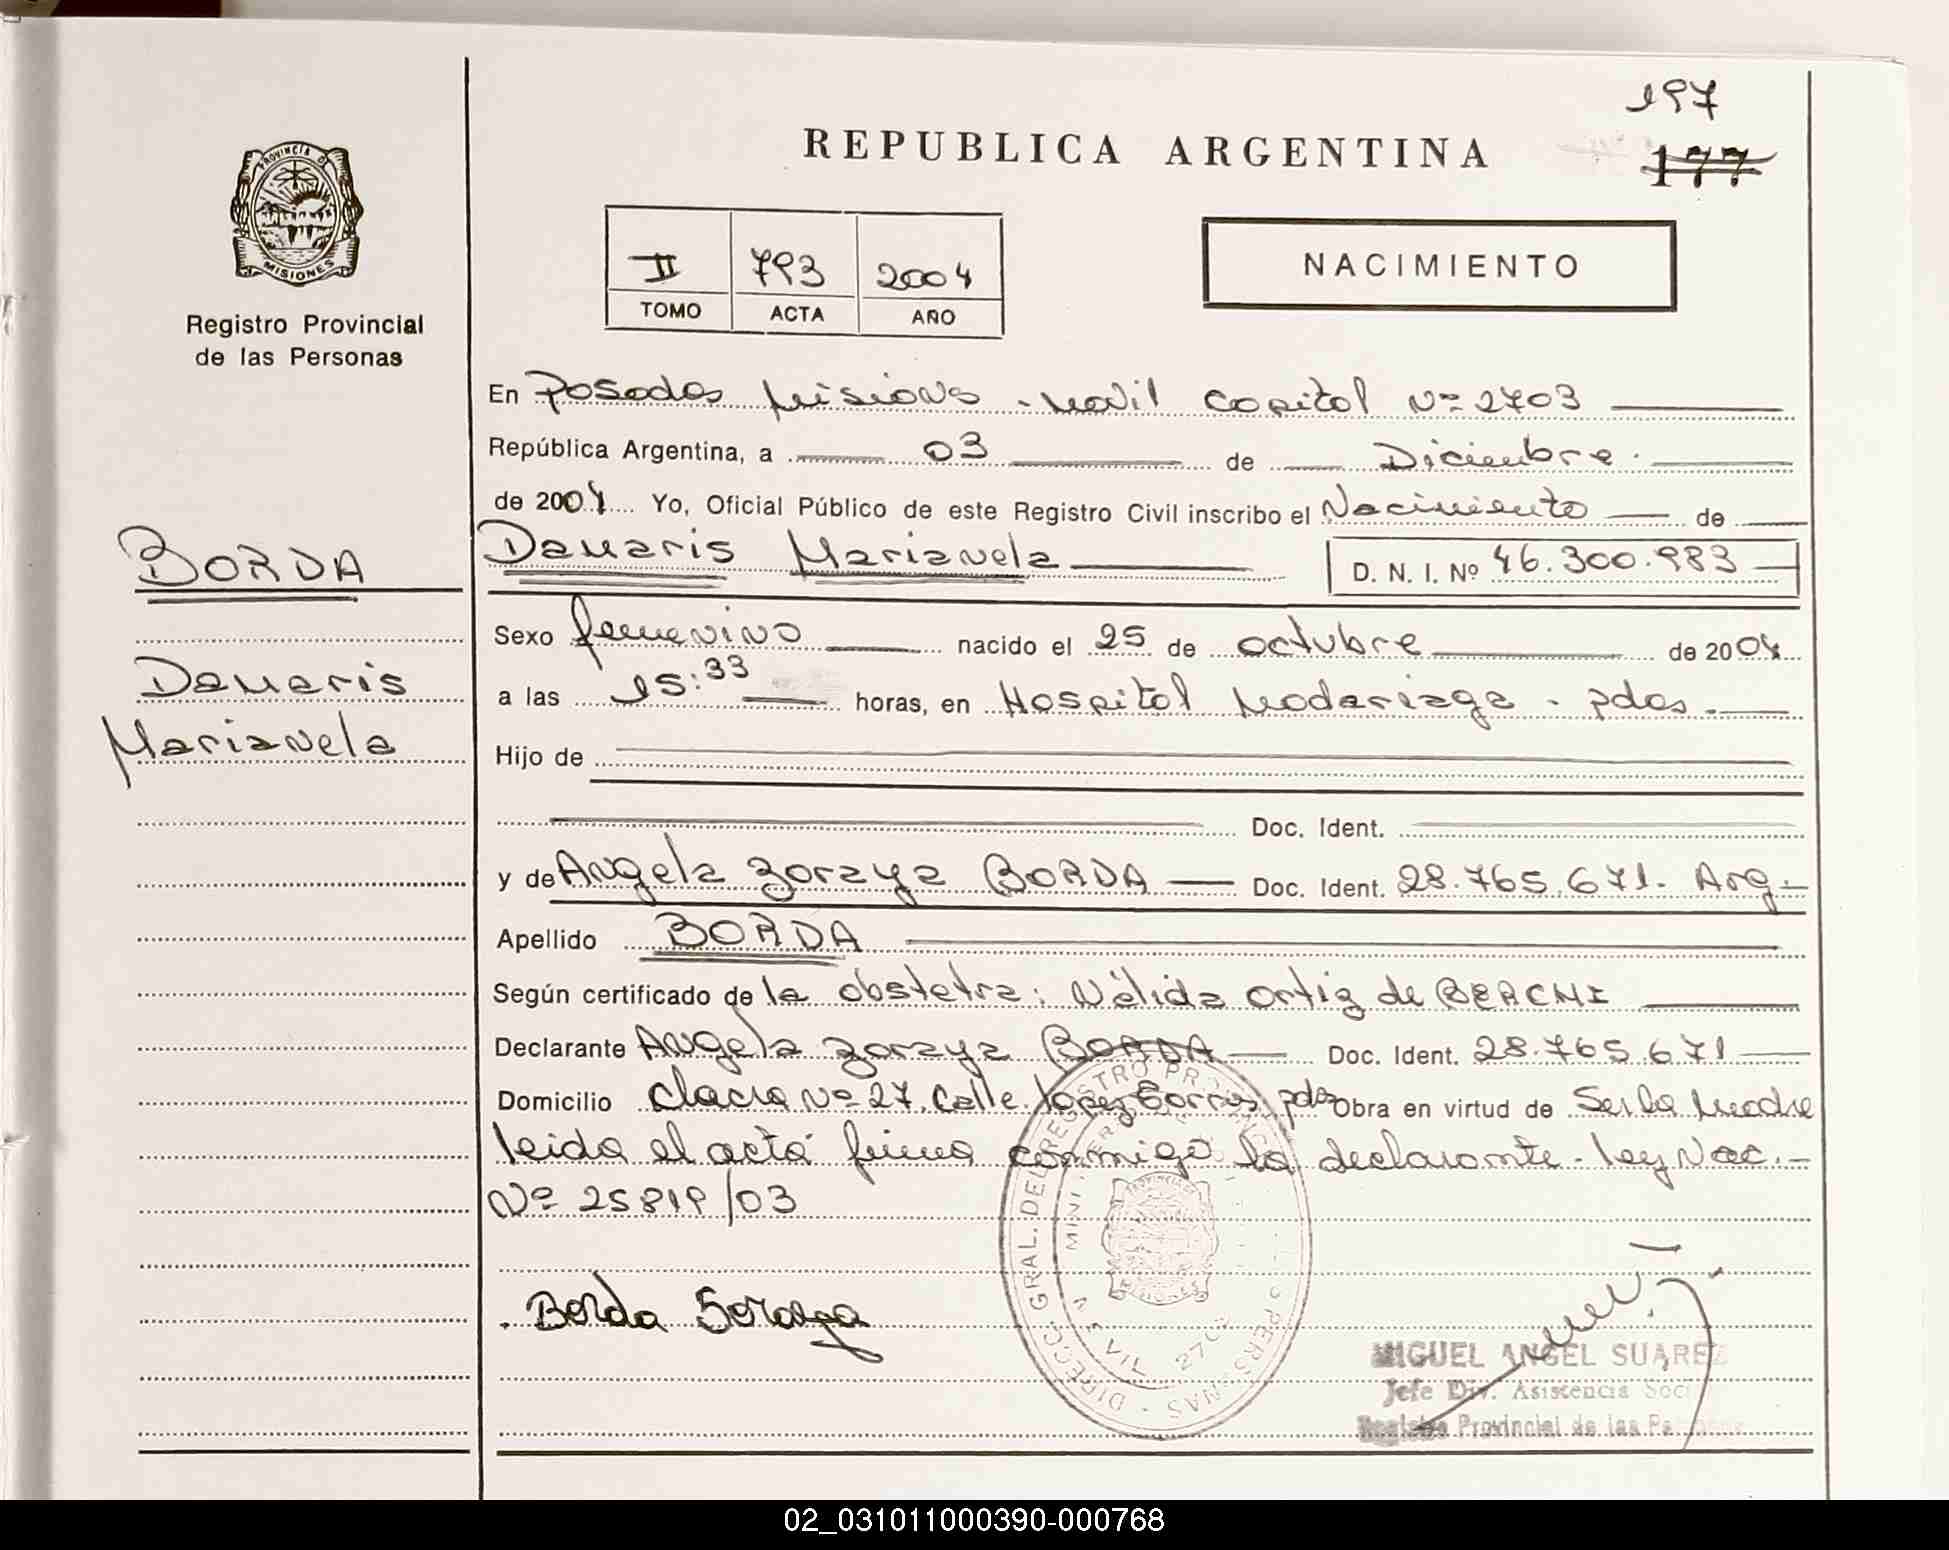 197
REPUBLICA ARGENTINA
177
PROVINCIA DE
MISIONES
Registro Provincial
de las Personas
II 793 2004
TOMO ACTA AÑO
NACIMIENTO
En Posadas Misiones - Movil Capital Nº 2703
República Argentina, a 03 de Diciembre
de 2004 Yo, Oficial Público de este Registro Civil inscribo el Nacimiento de
BORDA
Damaris Marianela D. N. I. Nº 46.300.983
Damaris
Marianela
Sexo femenino nacido el 25 de octubre de 2004
a las 15:33 horas, en Hospital Madariaga - pdas.
Hijo de
Doc. Ident.
y de Angela Zoraya BORDA Doc. Ident. 28.765.671. Arg.
Apellido BORDA
Según certificado de la obstetra: Nélida Ortiz de
Declarante Angela Zoraya BORDA Doc. Ident. 28.765.671
Domicilio Chacra Nº 27. Calle Lopez Torres, pdas Obra en virtud de Ser la Madre
leida el acta firma conmigo la declarante - Ley Nac. -
Nº 25819/03
Borda Soraya
DIRECC. GRAL. DEL REGISTRO PROVINCIAL
MISIONES
MIGUEL ANGEL SUAREZ
Jefe Div. Asistencia Soci
Registro Provincial de las Personas
02_031011000390-000768